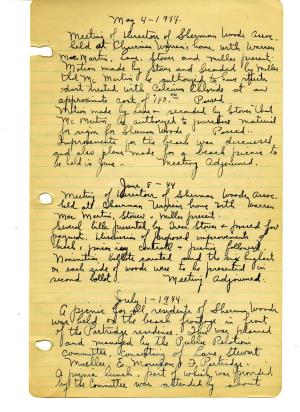 May 4 - 1944.
Meeting of Directors of Sherman Woods Assoc.
held at Chairman Warren's home, with Warren
Mac Martin, Lane, Stover and Miller present.
Motion made by Stover and seconded by Miller
that Mc Martin be authorized to have streets
dust treated with Calcium Chloride at an
approximate cost of 180.00 Passed
Motion made by Lane seconded by Stover that
Mc Martin be authorized to purchase material
for signs for Sherman Woods Passed.
Improvements for the beach was discussed
and also plans made for a beach picnic to
be held in June. Meeting Adjourned.
June 8 - 44
Meeting of Directors of Sherman Woods Assoc.
held at Chairman Warren's home with Warren
Mac Martin, Stover & Miller present.
Several bills presented by Stover & passed for
payment. Discussion of proposed improvements for
beach, picnic and
Nominating ballots counted and the six highest
on each side of woods were to be presented in
second ballot. Meeting Adjourned.
July 1 - 1944.
A picnic for all residents of Sherman Woods
was held on the beach fronting in front
of the Partridge residence. This was planned
and managed by the Public Relation
Committee, consisting of Lane, Stewart
Mueller, E. Morrison, J. F. Partridge.
A picnic lunch, part of which was provided
by the Committee was attended by about